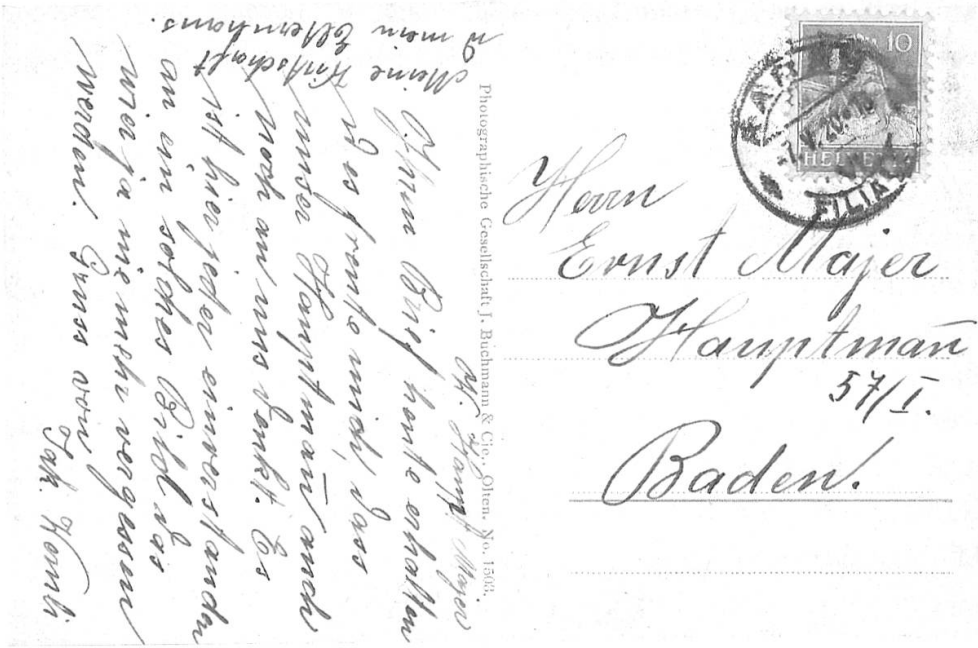 10
HELVETIA
Herrn
Ernst Majer
Hauptman̄
57/I.
Baden.
Photographische Gesellschaft J. Buchmann & Cie., Olten. No. 1503.
H. Haupt Majer
Ihren Brief heute erhalten
u es freute mich, dass
unser Hauptman̄ auch
noch an uns denkt. Es
ist hier jeder einverstanden
an ein solches Bild das
wier ja nie mehr vergessen
werden. Gruss von
Jak.
Meine Wirtschaft
u mein Elternhaus.